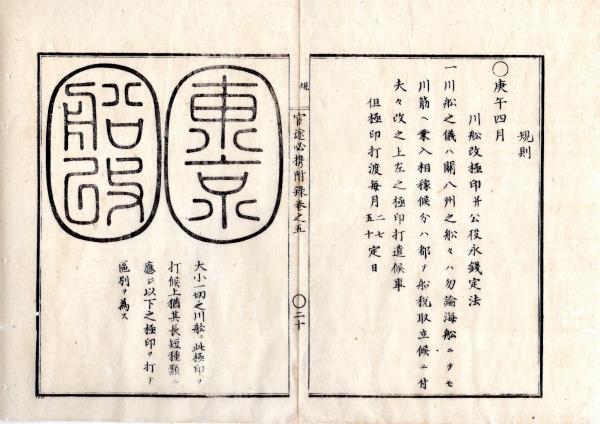 規則
○庚午四月
川船改極印并公役永錢定法
一川船之儀ハ關八州之船々ハ勿論海船ニテモ
川筋ヘ乗入相稼候分ハ都テ船税取立候ニ付
夫々改之上左之極印打遣候事
但極印打渡毎月二七五十定日
規
官途必携附錄巻之五
○二十
東京
船改
大小一切之川船ニ此極印ヲ
打候上猶其長短種類ニ
應ジ以下之極印ヲ打テ
區別ヲ為ス